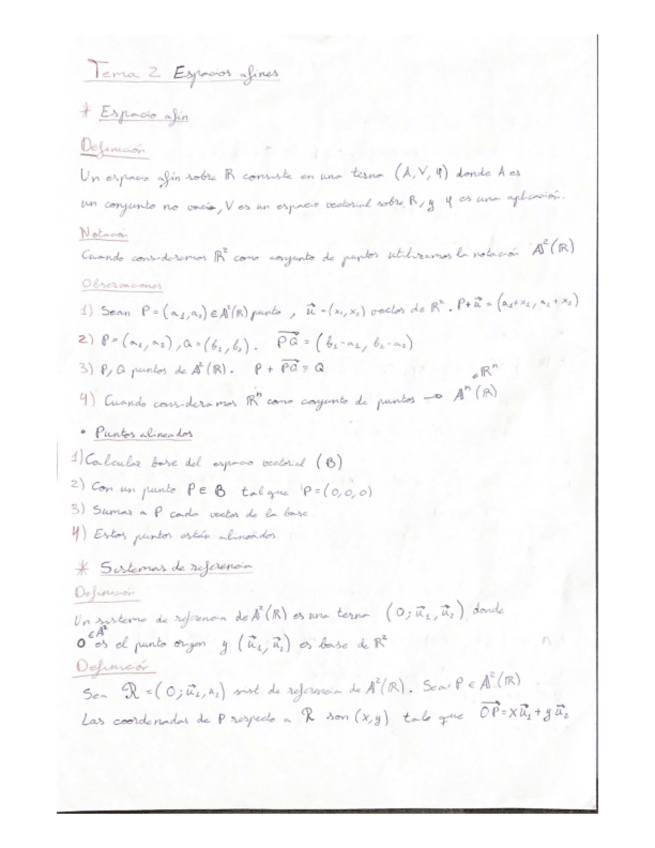 Tema 2 Espacios afines
* Espacio afín
Definición
Un espacio afín sobre ℝ consiste en una terna (A, V, φ) donde A es
un conjunto no vacío, V es un espacio vectorial sobre ℝ, y φ es una aplicación.
Notación
Cuando consideramos ℝ² como conjunto de puntos utilizamos la notación 𝔸²(ℝ)
Observaciones
1) Sean P = (a₁, a₂) ∈ 𝔸²(ℝ) punto, u⃗ = (x₁, x₂) vector de ℝ². P + u⃗ = (a₁+x₁, a₂+x₂)
2) P = (a₁, a₂), Q = (b₁, b₂). PQ⃗ = (b₁-a₁, b₂-a₂)
3) P, Q puntos de 𝔸²(ℝ). P + PQ⃗ = Q
4) Cuando consideramos ℝⁿ como conjunto de puntos → 𝔸ⁿ(ℝ)
• Puntos alineados
1) Calcular base del espacio vectorial (B)
2) Con un punto P ∈ B tal que P = (0,0,0)
3) Sumar a P cada vector de la base
4) Estos puntos están alineados.
* Sistemas de referencia
Definición
Un sistema de referencia de 𝔸²(ℝ) es una terna (O; u⃗₁, u⃗₂) donde
O ∈ 𝔸² es el punto origen y (u⃗₁, u⃗₂) es base de ℝ²
Definición
Sea ℛ = (O; u⃗₁, u₂) sist. de referencia de 𝔸²(ℝ). Sea P ∈ 𝔸²(ℝ)
Las coordenadas de P respecto a ℛ son (x,y) tale que OP⃗ = xu⃗₁ + yu⃗₂